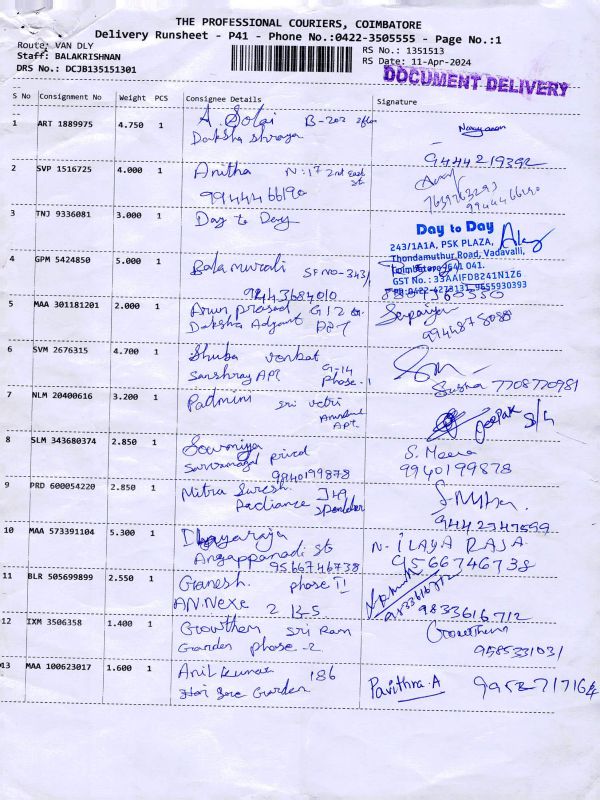 THE PROFESSIONAL COURIERS, COIMBATORE
Delivery Runsheet - P41 - Phone No.:0422-3505555 - Page No.:1
Route: VAN DLY
RS No.: 1351513
Staff: BALAKRISHNAN
RS Date: 11-Apr-2024
DRS No.: DCJB135151301
DOCUMENT DELIVERY
S No Consignment No Weight PCS Consignee Details Signature
1 ART 1889975 4.750 1 A. Solai B-202
Daksha shraya
9444219392
2 SVP 1516725 4.000 1 Anitha N:17 2nd East
st
9944466190
7639763293
9944466190
3 TNJ 9336081 3.000 1 Day to Day
Day to Day
243/1A1A, PSK PLAZA,
Thondamuthur Road, Vadavalli,
Coimbatore-641 041.
GST No.: 33AAIFD8241N1Z6
PH:0422-4273131, 9655930393
4 GPM 5424850 5.000 1 Balamurali SFNO-343/1
9443684010
5 MAA 301181201 2.000 1 Arun prasad G12
Daksha
9944875088
6 SVM 2676315 4.700 1 Shuba venkat G-14
Sanshray APt Phase-1
Susha 7708770981
7 NLM 20400616 3.200 1 Padmini sri vetri
Apt.
Deepak S/4
8 SLM 343680374 2.850 1 Sowmiya
9940199878
S. Meena
9940199878
9 PRD 600054220 2.850 1 Mitra Suresh J49
Radiance splendor
9442347599
10 MAA 573391104 5.300 1 Ilayaraja
Angappanadi st
9566746738
N-ILAYA RAJA
9566746738
11 BLR 505699899 2.550 1 Ganesh phase II
ANNexe 2 B-5
9833616712
9833616712
12 IXM 3506358 1.400 1 Gowthem sri Ram
Garden phase-2
Goowthem
9585331031
13 MAA 100623017 1.600 1 Anil kumar 186
Hari Sree Garden
Pavithra.A